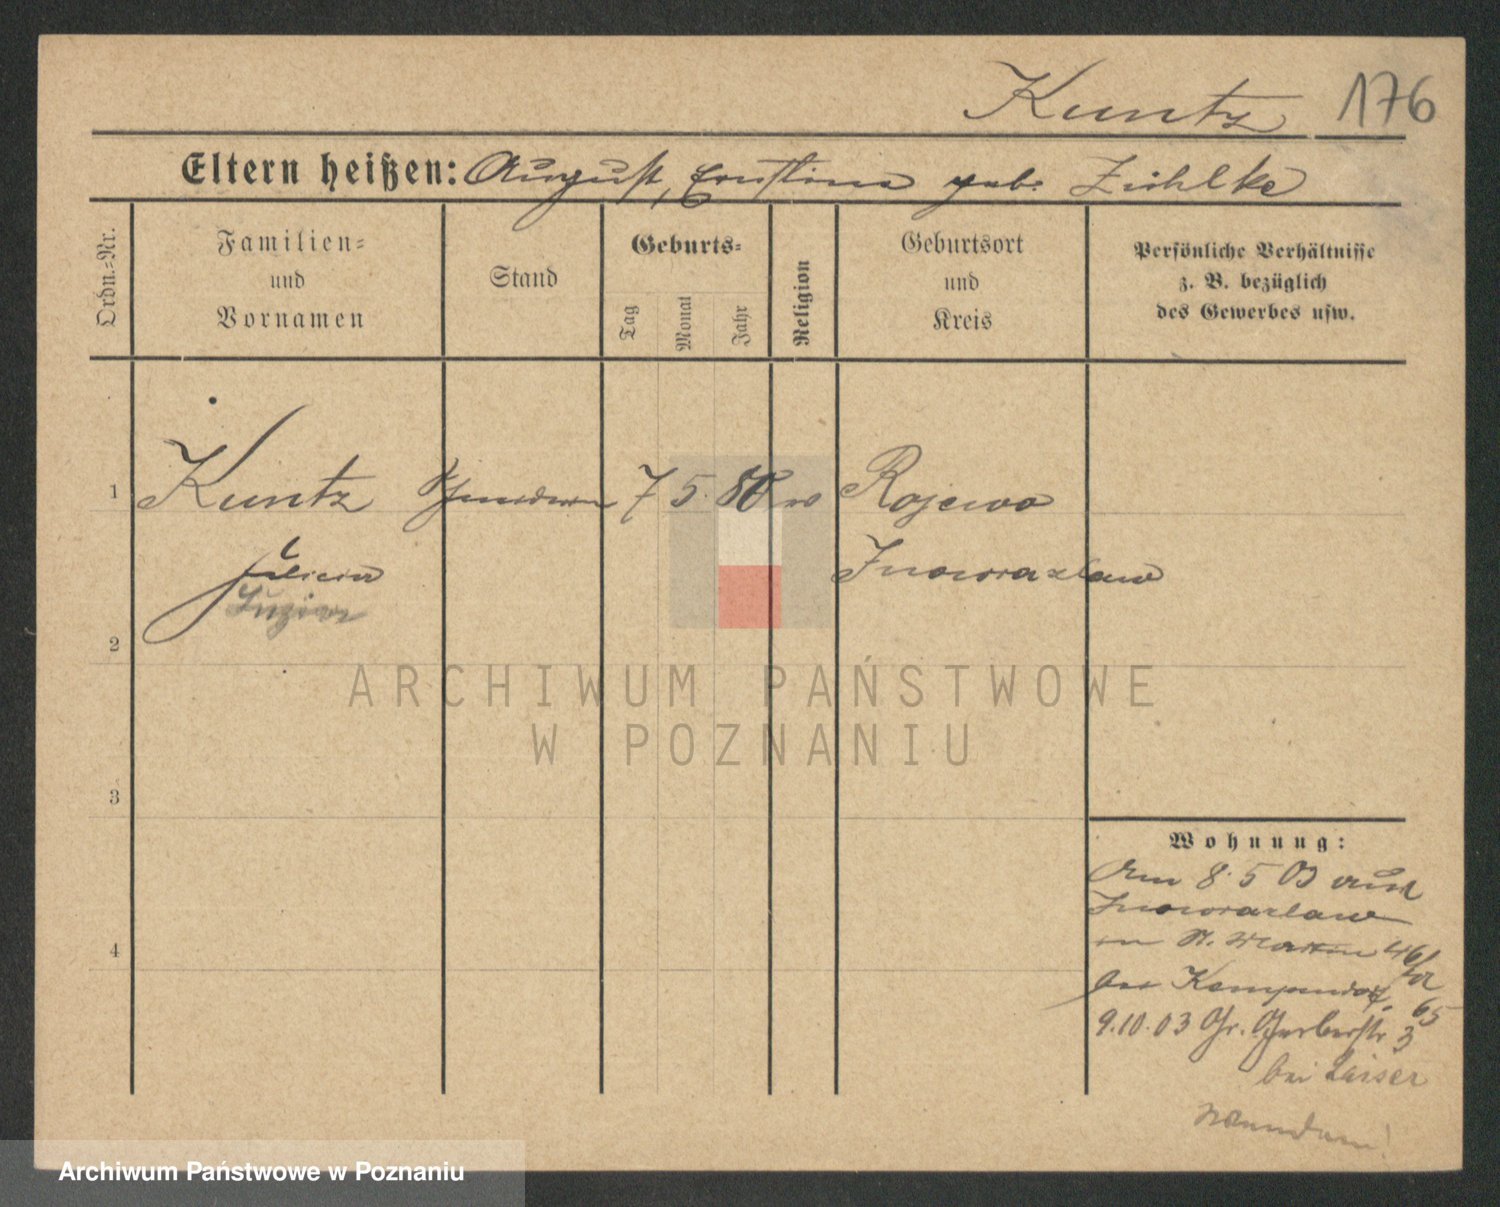 Kuntz 176
Eltern heißen: August, Ernstine geb. Zühlke
Ordn.-Nr.
Familien-
und
Vornamen
Stand
Geburts-
Tag
Monat
Jahr
Religion
Geburtsort
und
Kreis
Persönliche Verhältnisse
z. B. bezüglich
des Gewerbes usw.
1 Kuntz 7 5. 80 Rojewo
Inowrazlaw
Luzia
2
3
4
ARCHIWUM PAŃSTWOWE
W POZNANIU
Wohnung:
Am 8.5 03 aus
Inowrazlaw
in St. Martin 46/
65
9.10.03 Gr. Gerberstr 3
bei Laiser
Archiwum Państwowe w Poznaniu